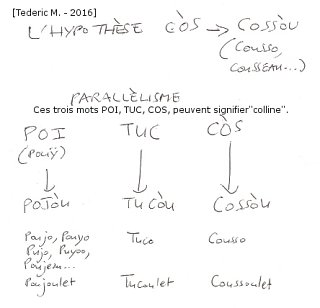 [Tederic M. - 2016]
L'HYPOTHÈSE CÒS → COSSÒU
(COUSSO,
COUSSEAU...)
PARALLÈLISME
Ces trois mots POI, TUC, COS, peuvent signifier"colline".
POI TUC CÒS
(POUŸ)
POJÒU TUCÒU COSSÒU
Poujo, Pouyo Tuco Cousso
Pujo, Puyoo,
Poujeu...
Poujoulet Tucoulet Coussoulet